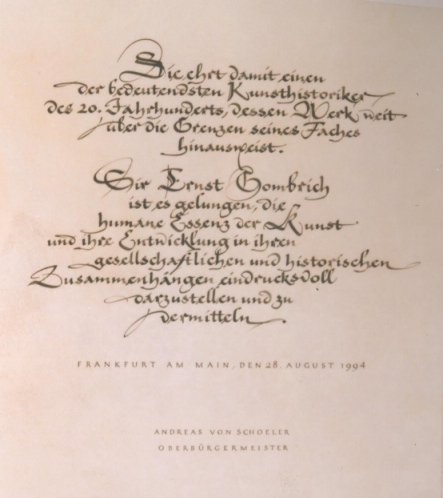 Sie ehrt damit einen
der bedeutendsten Kunsthistoriker
des 20. Jahrhunderts, dessen Werk weit
über die Grenzen seines Faches
hinausweist.
Sir Ernst Gombrich
ist es gelungen, die
humane Essenz der Kunst
und ihre Entwicklung in ihren
gesellschaftlichen und historischen
Zusammenhängen eindrucksvoll
darzustellen und zu
vermitteln.
FRANKFURT AM MAIN, DEN 28. AUGUST 1994
ANDREAS VON SCHOELER
OBERBÜRGERMEISTER